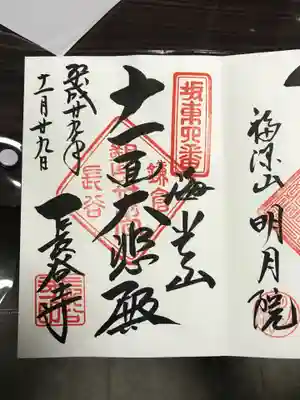 福源山
明月院
坂東四番
海光山
鎌倉
十一面大悲殿
長谷
長谷寺
平成廿九年
十一月廿九日